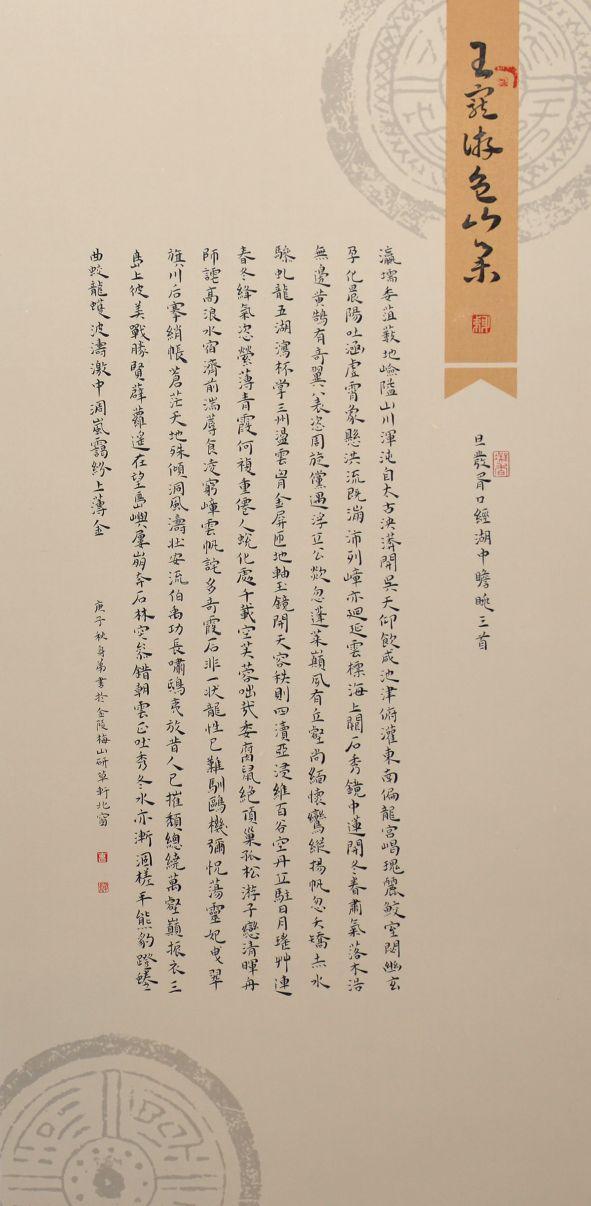 王寵游包山集
旦發胥口經湖中瞻眺三首
瀛壖委菹藪地嶮隘山川渾沌自太古泱漭開吳天仰飲咸池津俯灌東南偏龍宮唱瑰麗鮫室閟幽玄
孕化晨陽吐涵虛霄象懸洪流既瀰沛列嶂亦迴延雲標海上闕石秀鏡中蓮開冬春肅氣落木浩
無邊黃鵠有奇翼八表恣周旋儻遇浮丘公欻忽蓬萊巔夙有丘壑尚緬懷鸞縱揚帆忽夭矯赤水
驂虬龍五湖瀉杯掌三州盪雲胷金屏匝地軸玉鏡開天容秩則四瀆亞浸維百谷空丹丘駐日月瑤艸連
春冬絳氣恣縈薄青霞何複重僊人蛻化處千載空芙蓉咄哉委腐鼠絕頂巢孤松游子戀清暉舟
師詫高浪水宿濟前湍蓐食凌窮嶂雲帆詫多奇霞石非一狀龍性已難馴鷗機彌怳蕩靈妃曳翠
旗川后搴綃帳蒼茫天地殊傾洞風濤壯安流伯禹功長嘯鴟夷放昔人已摧頹總繞萬壑巔振衣三
島上彼美戰勝賢薜蘿遙在望島嶼屢崩奔石林突參錯朝雲正吐秀冬水亦漸涸槎牙熊豹蹬蟠
曲蛟龍蠖波濤激中凋嵐靄紛上薄金
庚子秋身弟書於金陵梅山研草軒北窗